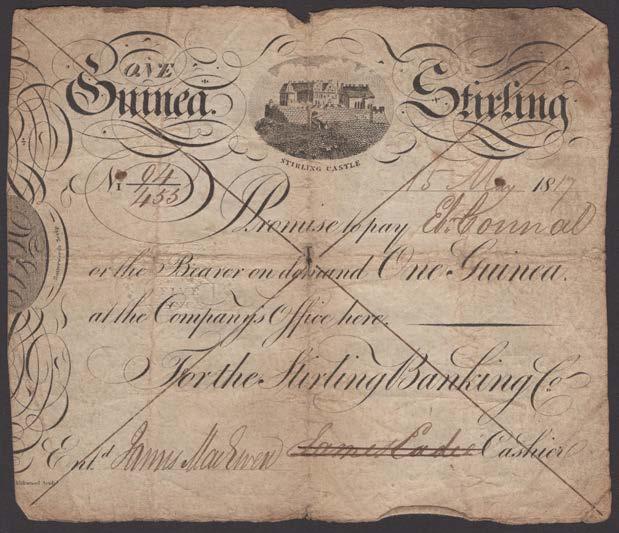 ONE
Guinea. Stirling
STIRLING CASTLE
No 94/455 15 May 1817
I Promise to pay Ed. Connal
or the Bearer on demand One Guinea.
at the Company's Office here.
For the Stirling Banking Co.
Entd. James MacEwen James Eadie Cashier
Kirkwood Sculp